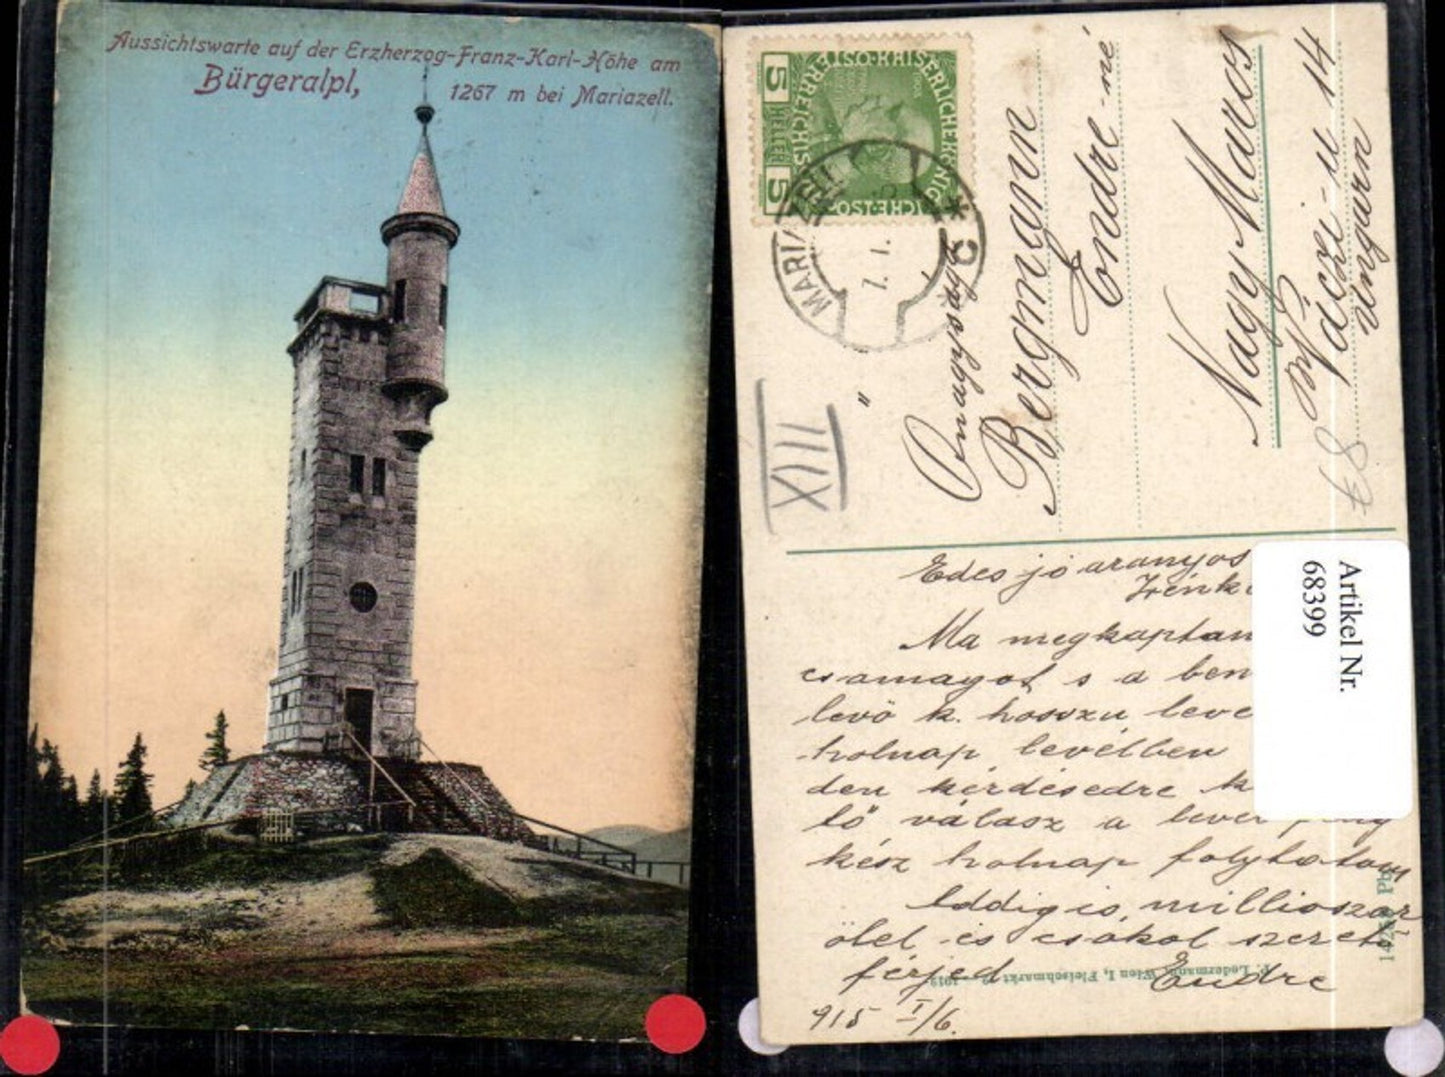 Aussichtswarte auf der Erzherzog-Franz-Karl-Höhe am
Bürgeralpl, 1267 m bei Mariazell.
5 HELLER 5
KAISERLICHE KÖNIGLICHE ÖSTERREICHISCHE
MARIAZELL
7. 1.
XIII
Önagysága
Bergmann
Endre-né
Nagy Maros
Váczi-u 14
Ungarn
Artikel Nr.
68399
Edes jó aranyos
Irénk
Ma megkaptam
csamagot s a ben
levö k. hosszu leve
holnap levélben
den kérdésedre k
tö válasz a level
kész holnap folytatom
Addig is, milliószor
ölel és csókol szerető
férjed Endre
915 I/6.
P. Ledermann, Wien I, Fleischmarkt